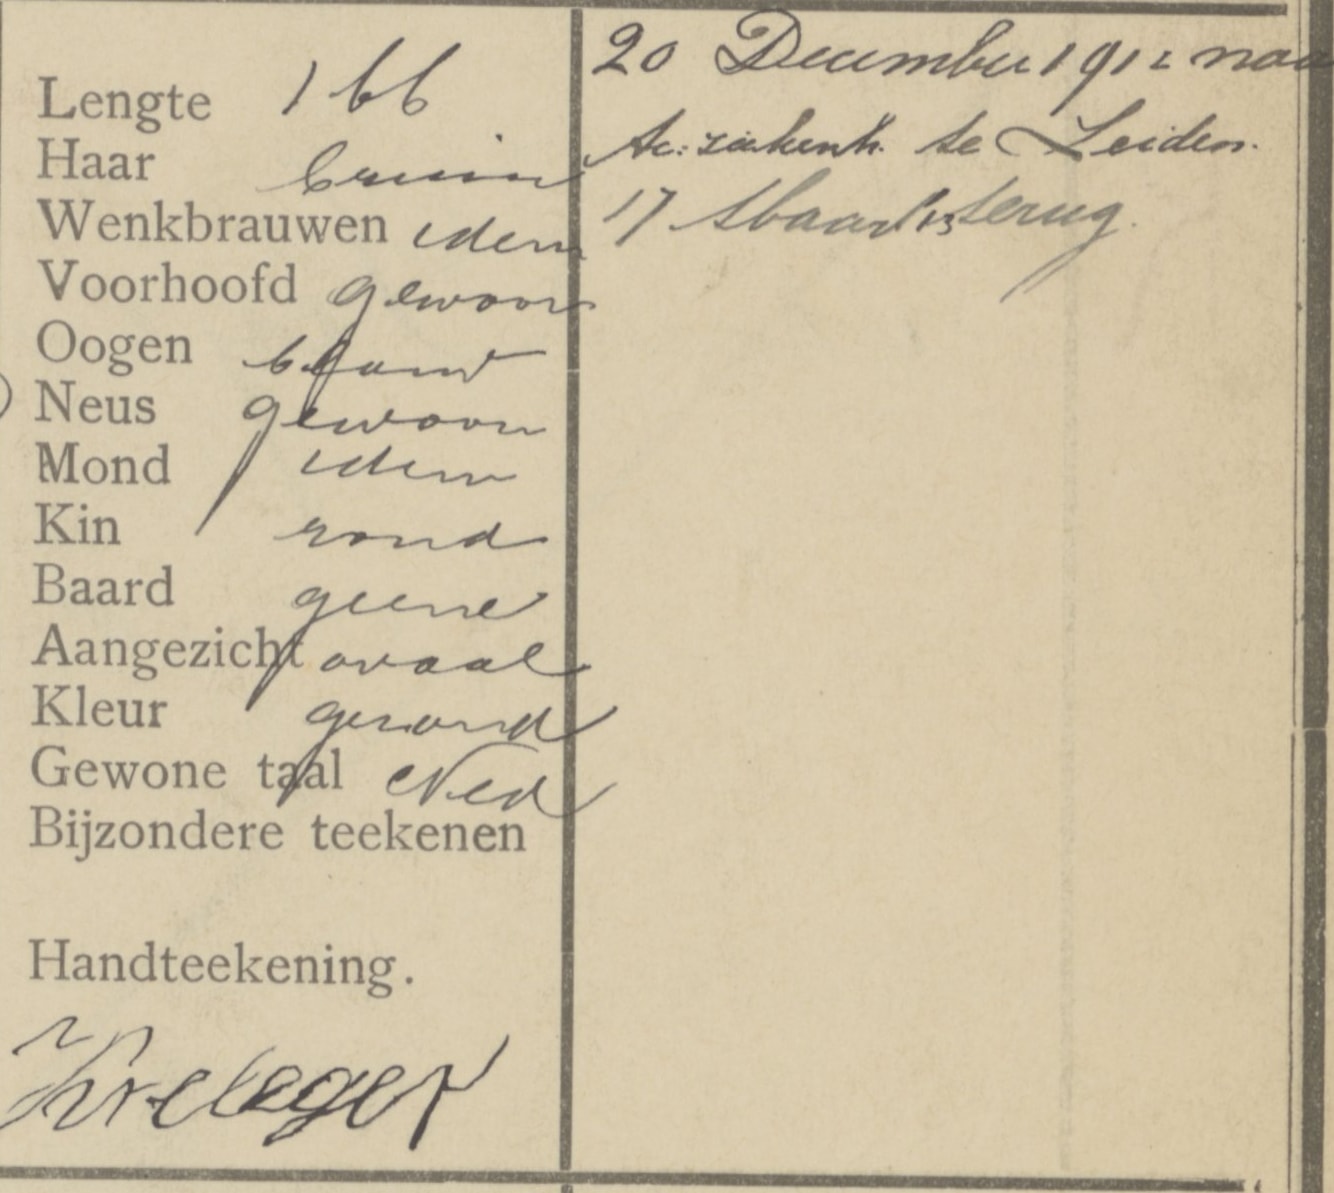 Lengte 166
Haar bruin
Wenkbrauwen idem
Voorhoofd gewoon
Oogen blauw
Neus gewoon
Mond idem
Kin rond
Baard geene
Aangezicht ovaal
Kleur gezond
Gewone taal Ned
Bijzondere teekenen
Handteekening.
20 December 1912 naa
Ac: ziekenh. te Leiden.
17 Maart 13 terug.